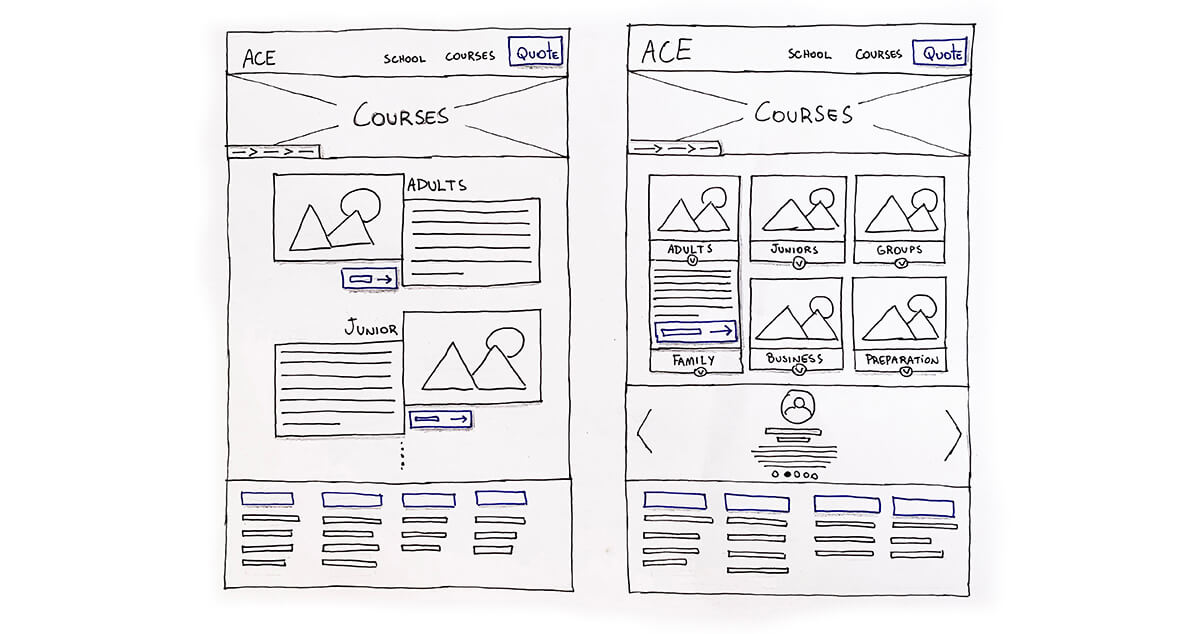 ACE SCHOOL COURSES QUOTE
COURSES
ADULTS
JUNIOR
ACE SCHOOL COURSES QUOTE
COURSES
ADULTS JUNIORS GROUPS
FAMILY BUSINESS PREPARATION